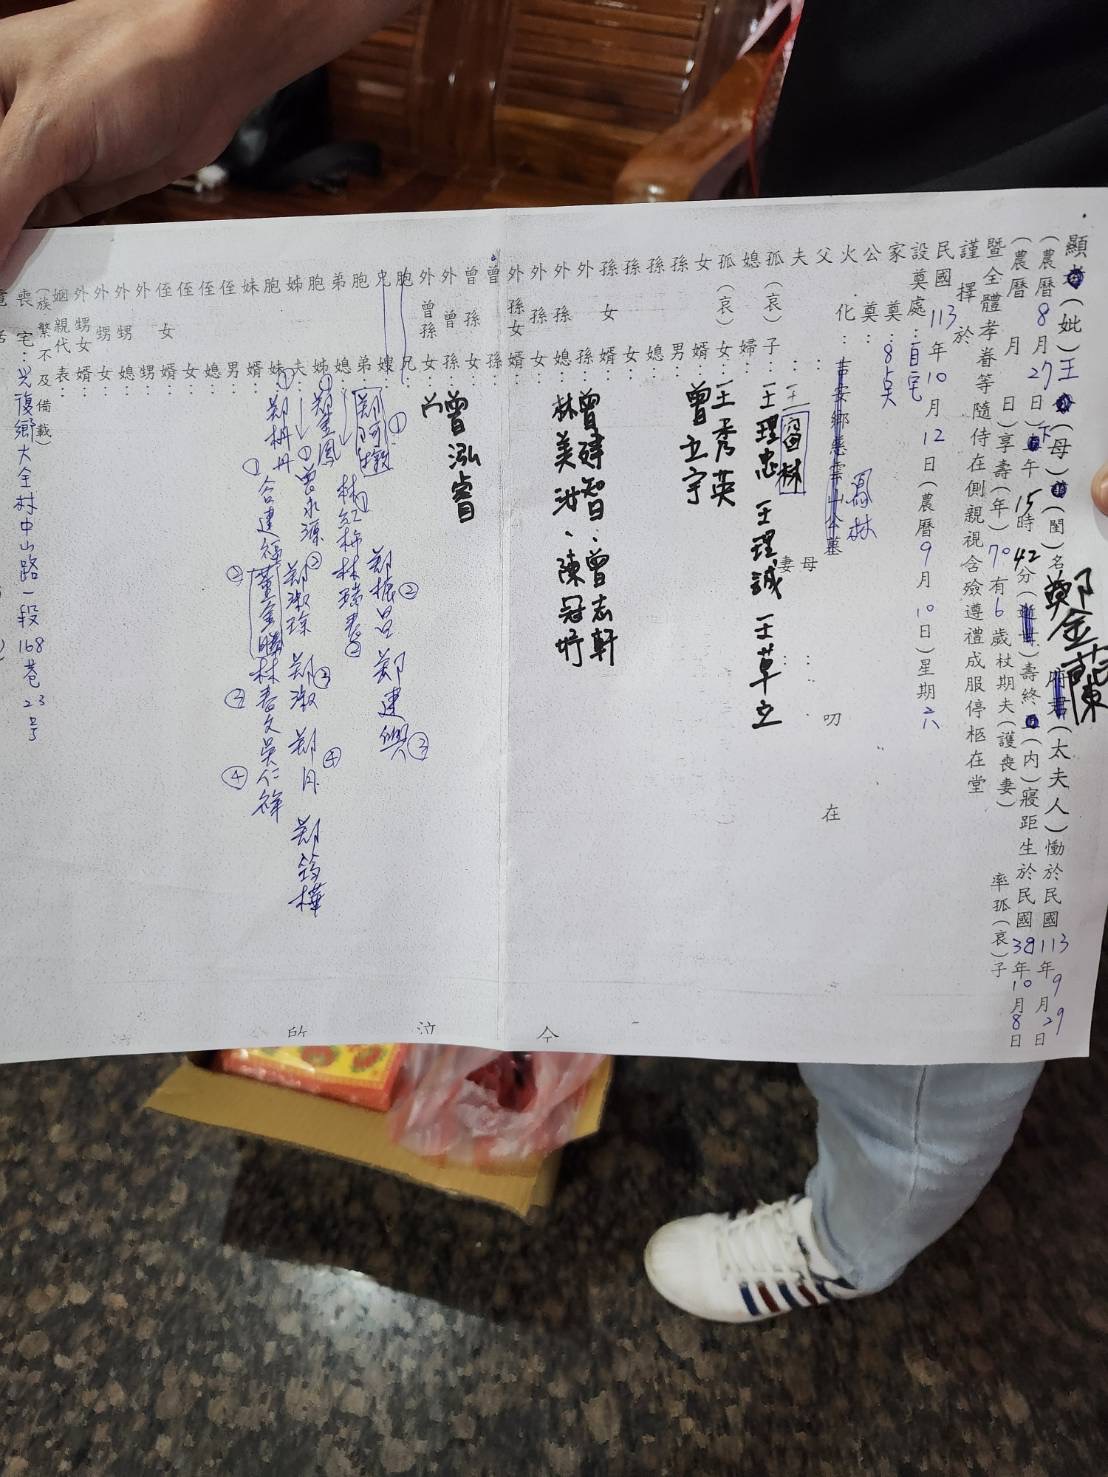 顯 (妣) 王 (母) (閨) 名 鄭金蘭 (太夫人) 慟於民國 113 年 9 月 29 日
(農曆 8 月 27 日) 下午 15 時 42 分 壽終 (內) 寢距生於民國 38 年 10 月 8 日
(農曆 月 日) 享壽 (年) 70 有 6 歲 杖期夫 (護喪妻) 率孤 (哀) 子
暨全體孝眷等隨侍在側親視含殮遵禮成服停柩在堂
謹擇於
民國 113 年 10 月 12 日 (農曆 9 月 10 日) 星期 六
設奠處:自宅
家奠:8点
公奠:
火化: 鳳林
父 母 叨在
夫 妻: 王 林
孤 (哀) 子: 王理忠 王理誠 王草立
媳婦:
孤 (哀) 女: 王秀英
女婿: 曾立宇
孫男:
孫媳:
孫女:
孫女婿:
外孫: 曾建智、曾志軒
外孫媳: 林美汝、陳冠妤
外孫女:
外孫女婿:
曾孫:
曾孫女:
外曾孫: 曾泓睿
外曾孫女:
胞兄:
兄嫂:
胞弟: ① 鄭振呂 ② 鄭建興 ③
弟媳: 林紅柿 ① 林瑧春 ②
胞姊: 鄭金鳳 ① 鄭淑珠 ② 鄭淑 ③ 鄭月 ④ 鄭鈞樺
姊夫: ① 曾永源
胞妹: ① 鄭枬丹
妹婿: ① 合建福 ② 董金勝 林春文 ③ 吳仁祥 ④
侄男:
侄媳:
侄女:
侄女婿:
外甥:
外甥媳:
外甥女:
外甥女婿:
姻親代表:
(族繁不及備載)
喪宅:光復鄉大全村中山路一段168巷23号